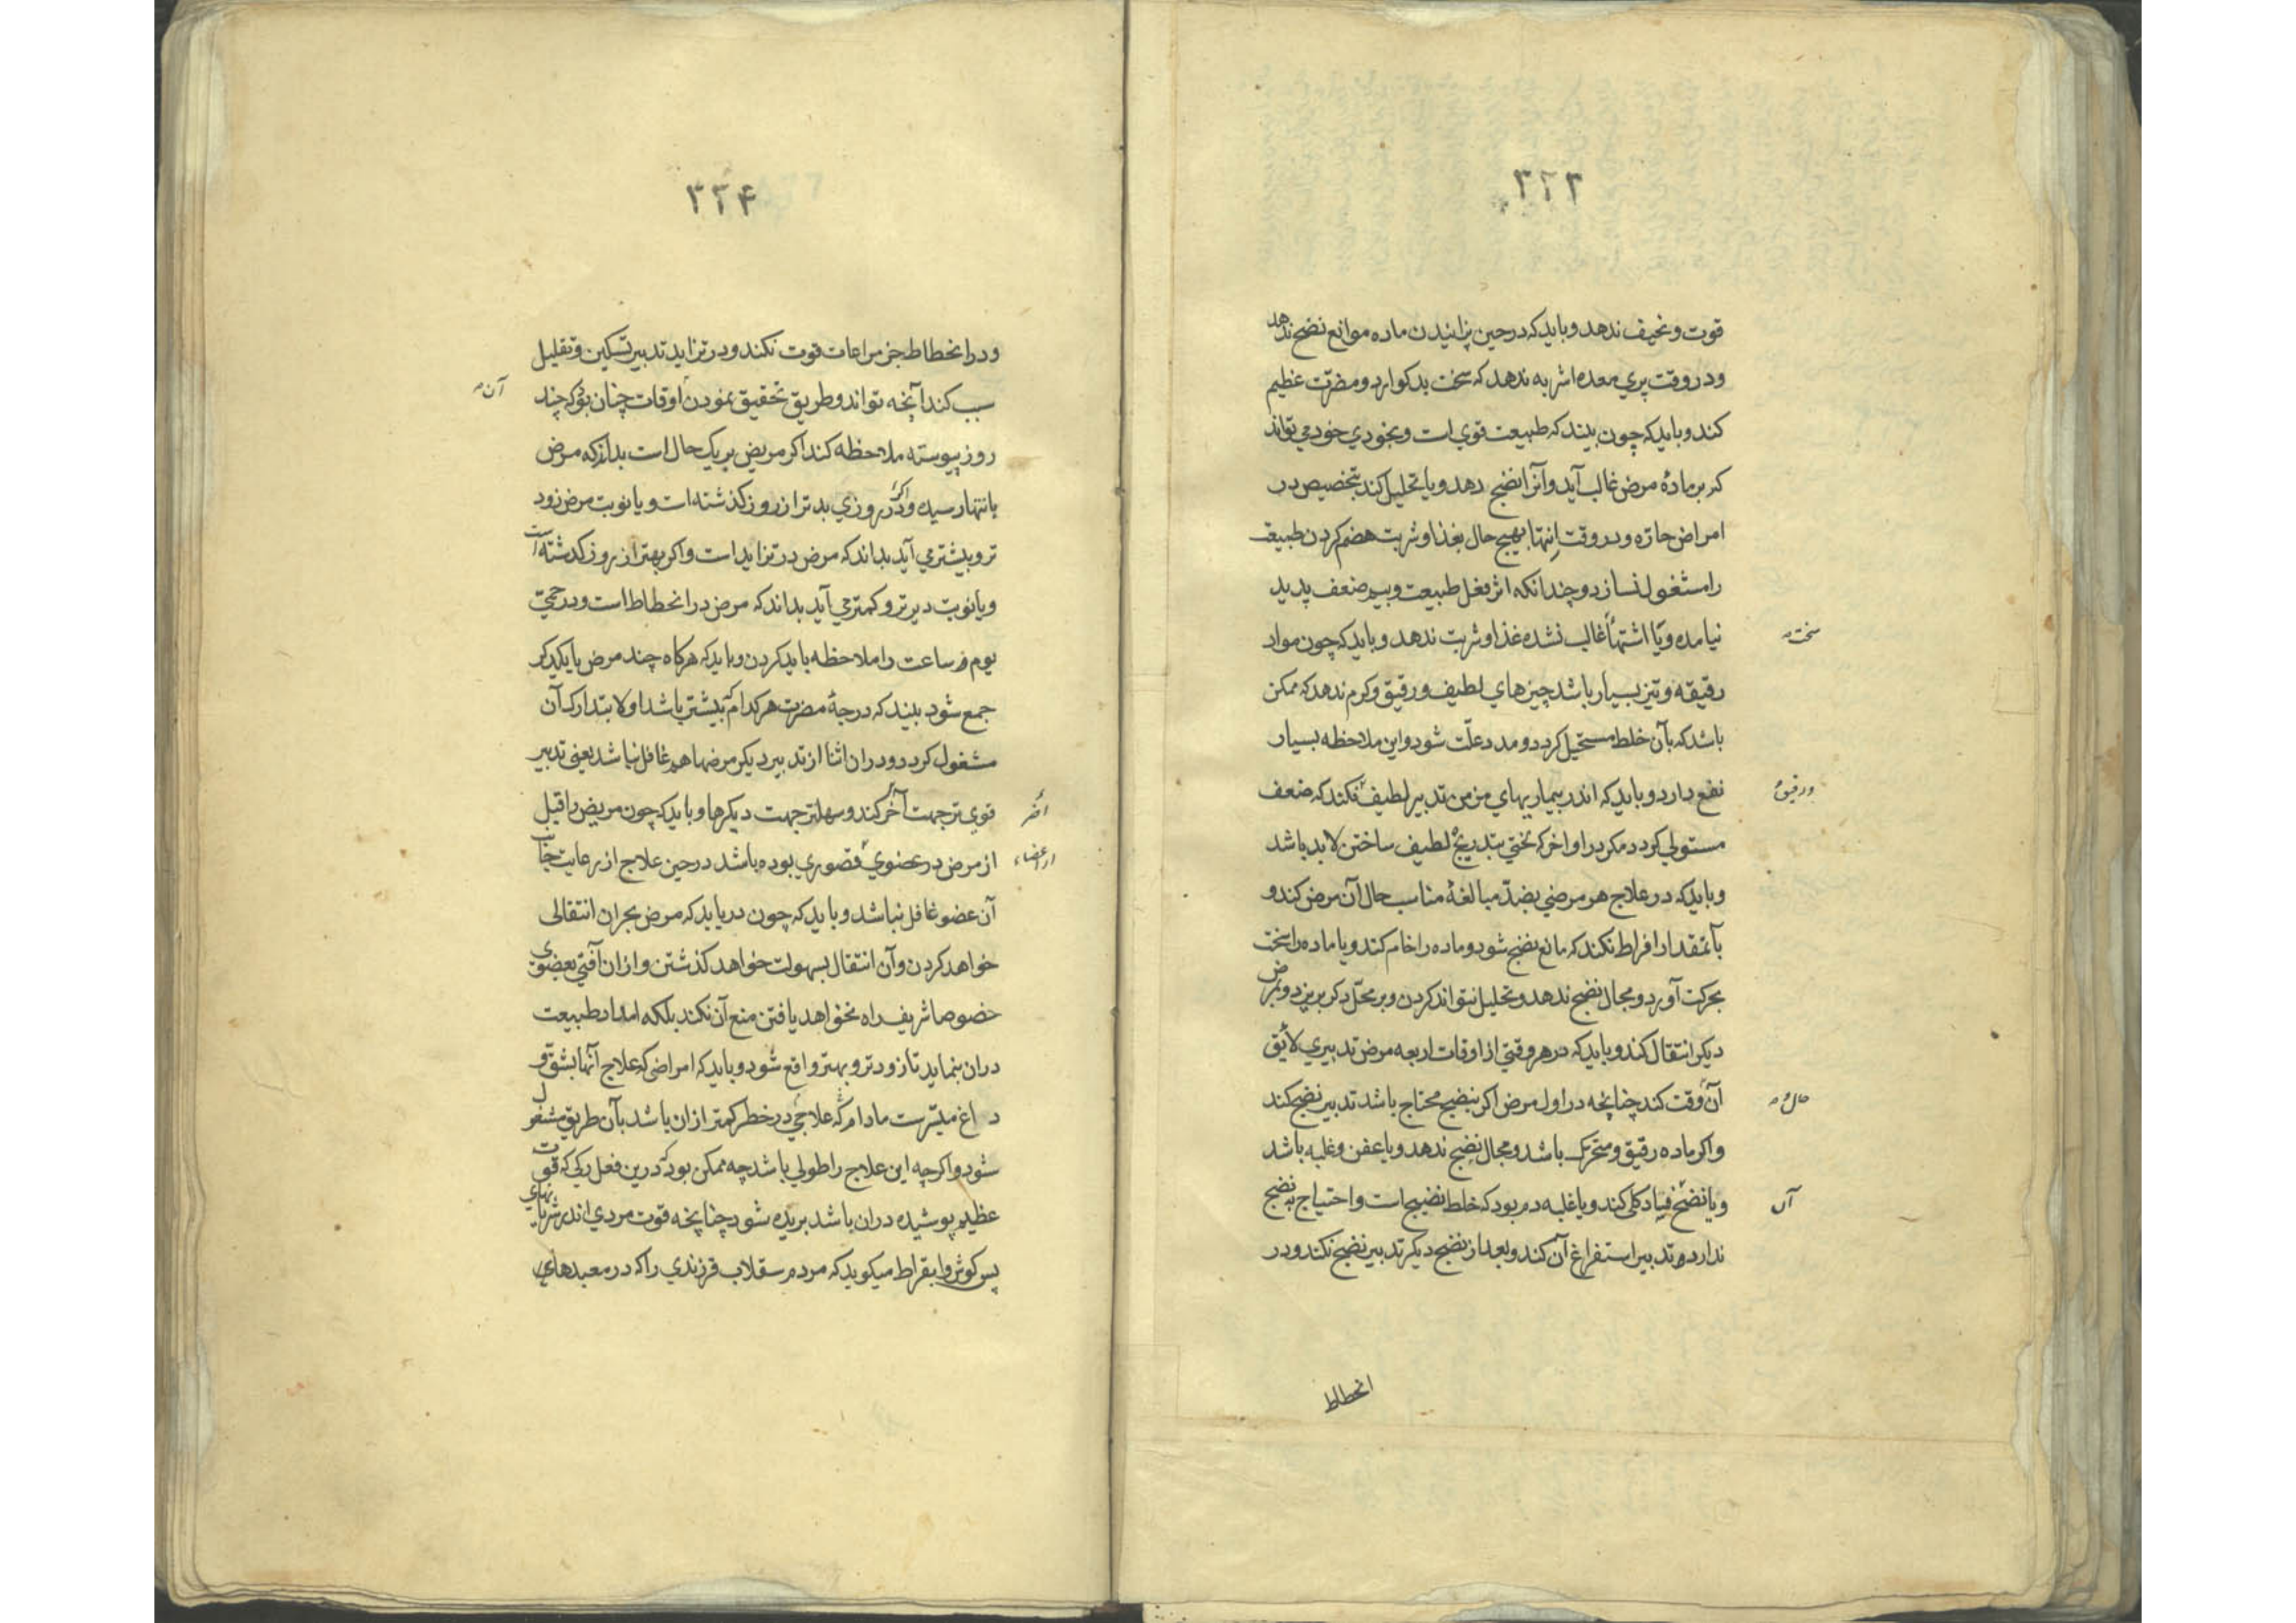 ۳۲۳
قوت و نحیف ندهد و باید که در حین پزانیدن ماده موانع نضج ندهد
و در وقت پری معده اشربه ندهد که سخت بد کوارد و مضرت عظیم
کند و باید که چون بیند که طبیعت قوی است و بخودی خود می تواند
که بر مادهٔ مرض غالب آید و آنرا نضج دهد و یا تحلیل کند بتخصیص در
امراض حاره و در وقت انتها بهیچ حال بغذا و شربت هضم کردن طبیعت
را مشغول نسازد و چندانکه اثر فعل طبیعت و بیم ضعف پدید
نیامده و یا اشتها غالب نشده غذا و شربت ندهد و باید که چون مواد
سخت
رقیقه و تیز بسیار باشد چیزهای لطیف و رقیق و کرم ندهد که ممکن
باشد که بآن خلط مستحیل کردد و مدد علّت شود و این ملاحظه بسیار
نفع دارد و باید که اندر بیماریهای مزمن تدبیر لطیف نکند که ضعف
و رقیق
مستولی کردد مکر در اواخر که تختی بتدریج لطیف ساختن لابد باشد
و باید که در علاج هر مرضی بضدّ مبالغهٔ مناسب حال آن مرض کند و
بآنمقدار افراط نکند که مانع نضج شود و ماده را خام کند و یا ماده را سخت
بحرکت آورد و مجال نضج ندهد و تحلیل نتواند کردن و بر محلّ دکر بریزد و بمرض
دیکر انتقال کند و باید که در هر وقتی از اوقات اربعه مرض تدبیری لائق
آن وقت کند چنانچه در اول مرض اکر بنضج محتاج باشد تدبیر نضج کند
حال
و اکر ماده رقیق و متحرک باشد و مجال نضج ندهد و یا عفن و غلبه باشد
و یا نضج فساد کلی کند و یا غلبه دم بود که خلط نضیج است و احتیاج به نضج
آن
ندارد و تدبیر استفراغ آن کند و بعد از نضج دیکر تدبیر نضج نکند و در
انحطاط
۳۲۴
و در انحطاط جز مراعات قوت نکند و در تزاید تدبیر تسکین و تقلیل
سبب کند آنچه تواند و طریق تحقیق نمودن اوقات چنان بود که چند
آن
روز پیوسته ملاحظه کند اکر مریض بر یک حال است بداند که مرض
بانتها رسیده و اکر در روزی بدتر از روز کذشته است و یا نوبت مرض زود
تر و بیشتر می آید بداند که مرض در تزاید است و اکر بهتر از روز کذشته است
و یا نوبت دیرتر و کمتر می آید بداند که مرض در انحطاط است و در حمی
یوم هر ساعت را ملاحظه باید کردن و باید که هرکاه چند مرض با یکدیکر
جمع شود بیند که درجهٔ مضرت هر کدام که بیشتر باشد اولا بتدارک آن
مشغول کردد و دران اثنا از تدبیر دیکر مرضها هم غافل نباشد یعنی تدبیر
قوی تر جهت آخر کند و سهلتر جهت دیکرها و باید که چون مریض را قبل
اضر
از مرض در عضوی قصوری بوده باشد در حین علاج از رعایت جانب
از اعضاء
آن عضو غافل نباشد و باید که چون دریابد که مرض بحران انتقالی
خواهد کردن و آن انتقال بسهولت خواهد کذشتن و ازان آفتی بعضوی
خصوصا شریف راه نخواهد یافتن منع آن نکند بلکه امداد طبیعت
دران بنماید تا زودتر و بهتر واقع شود و باید که امراضی که علاج آنها بشق و
داغ میسرست مادام که علاجی در خطر کمتر ازان باشد بآن طریق مشغول
شود و اکرچه این علاج را طولی باشد چه ممکن بود که درین فعل رکی که قوت
عظیم پوشیده دران باشد بریده شود چنانچه قوت مردی اندر شریانهای
پس کوش و ابقراط میکوید که مردم سقلاب فرزندی را که در معبدهای